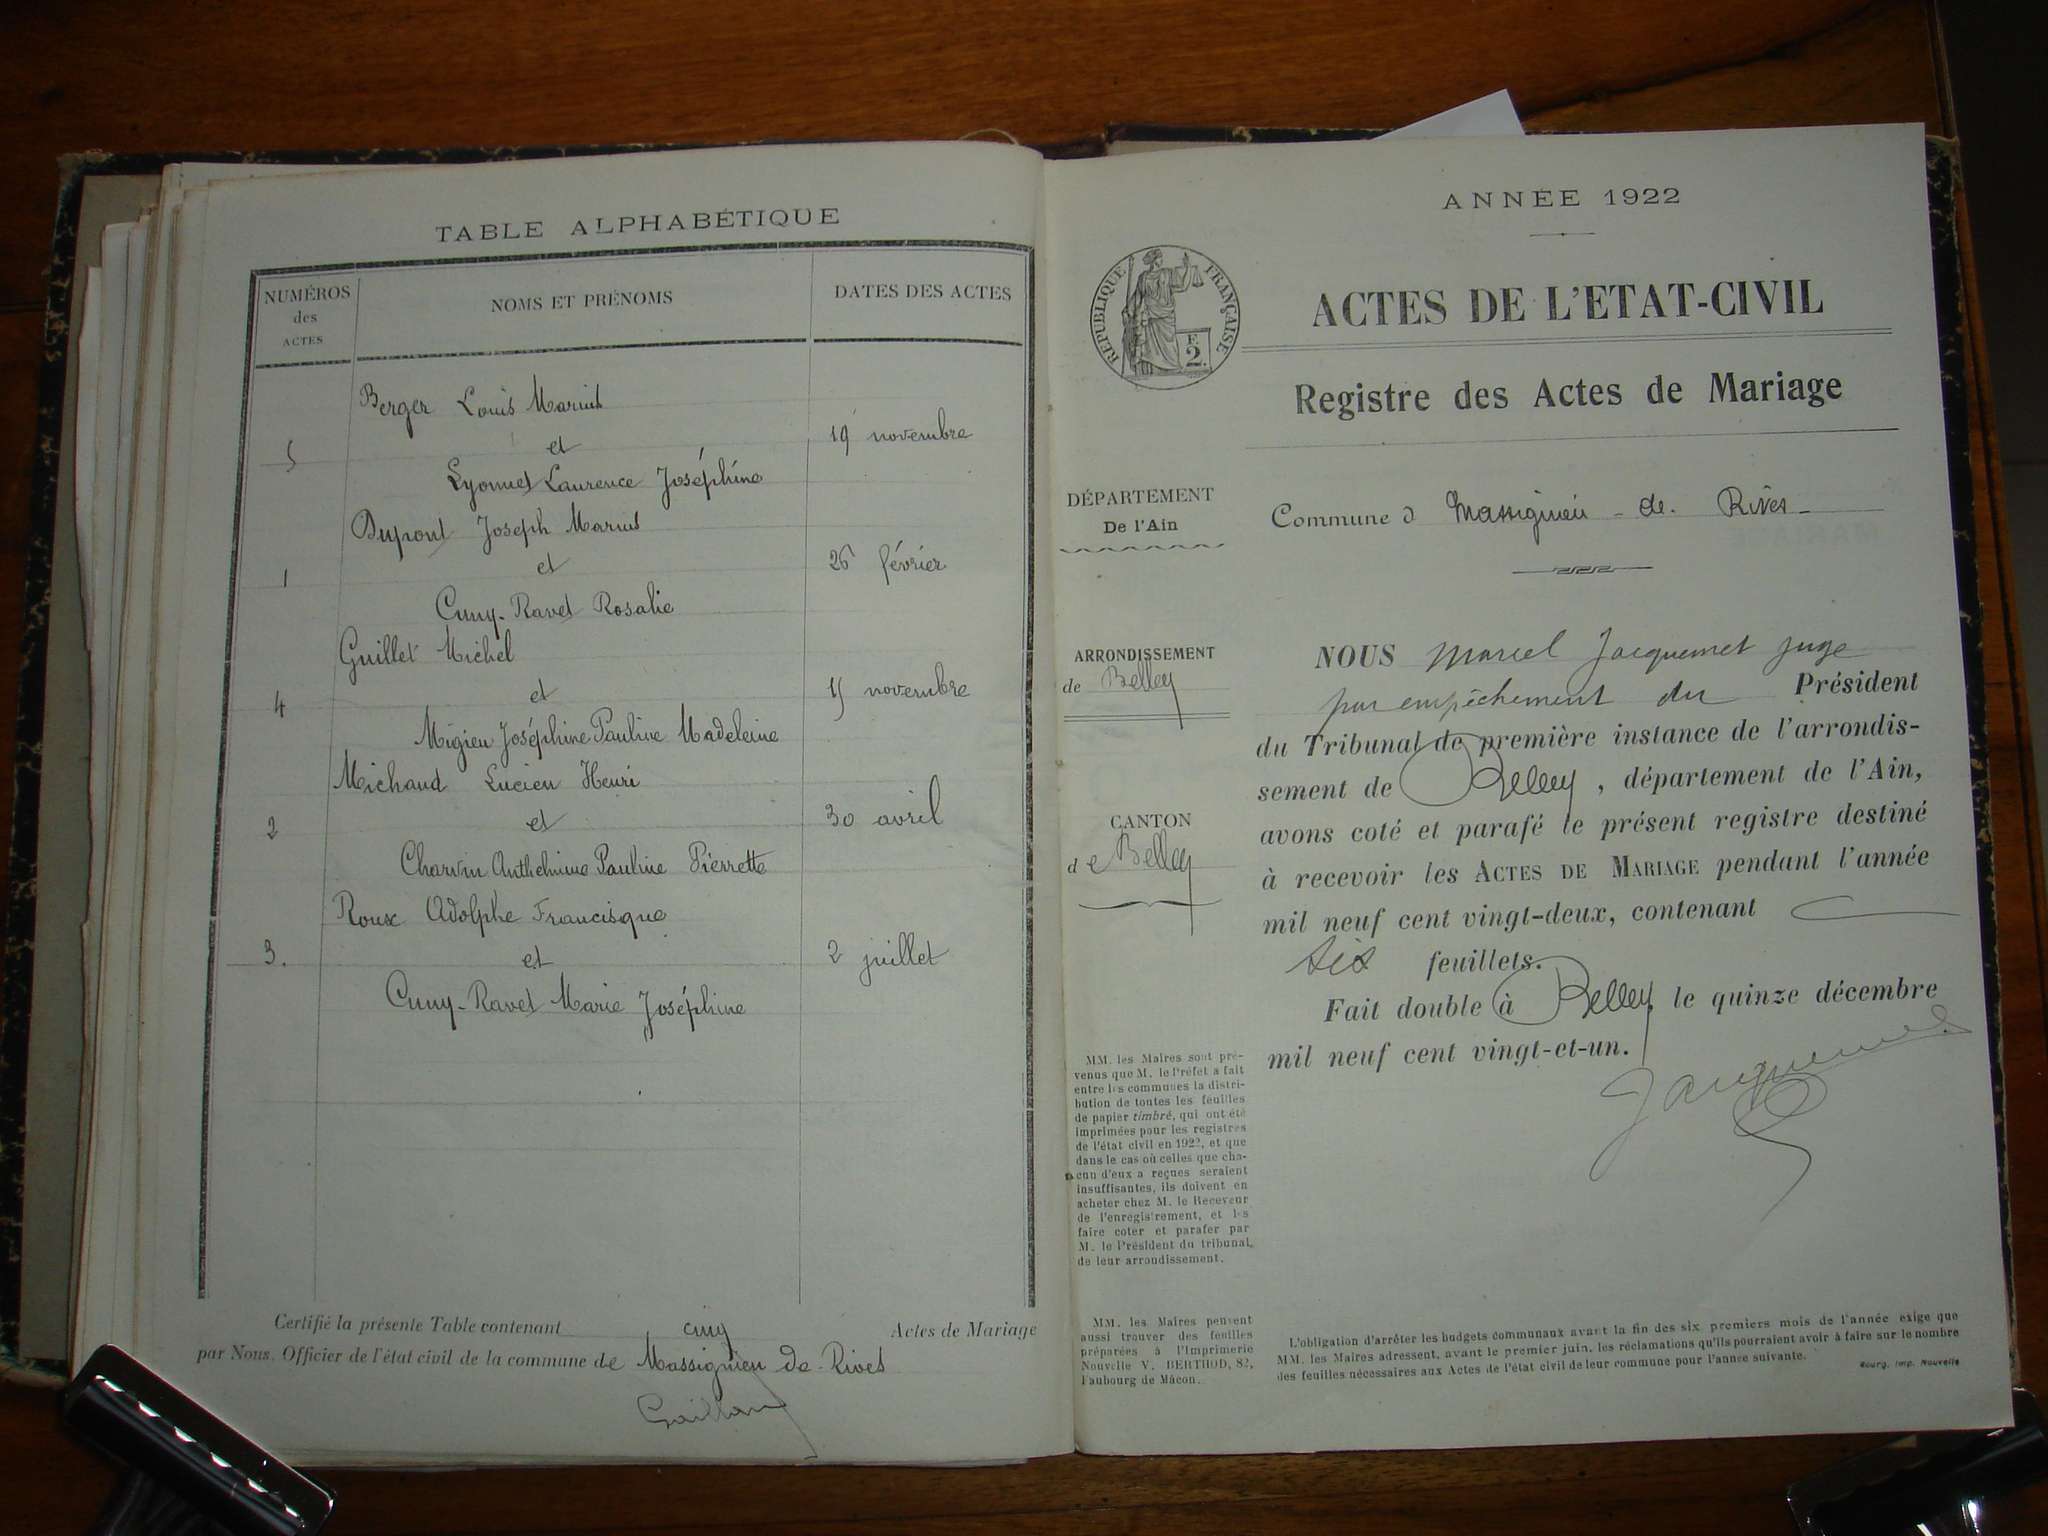 TABLE ALPHABÉTIQUE
NUMÉROS
des
ACTES
NOMS ET PRÉNOMS
DATES DES ACTES
Berger Louis Marius
5 et 19 novembre
Lyonnet Laurence Joséphine
Dupont Joseph Marius
1 et 26 février
Cuny-Ravet Rosalie
Guillet Michel
4 et 15 novembre
Migieu Joséphine Pauline Madeleine
Michaud Lucien Henri
2 et 30 avril
Charvin Anthelmine Pauline Pierrette
Roux Adolphe Francisque
3. et 2 juillet
Cuny-Ravet Marie Joséphine
Certifié la présente Table contenant cinq Actes de Mariage
par Nous, Officier de l'état civil de la commune de Massignieu de-Rives
ANNÉE 1922
RÉPUBLIQUE FRANÇAISE
F.
2.
ACTES DE L'ETAT-CIVIL
Registre des Actes de Mariage
DÉPARTEMENT
De l'Ain
Commune d Massignieu - de - Rives -
ARRONDISSEMENT
de Belley
CANTON
de Belley
NOUS Marcel Jacquemet juge
par empêchement du Président
du Tribunal de première instance de l'arrondis-
sement de Belley, département de l'Ain,
avons coté et parafé le présent registre destiné
à recevoir les ACTES DE MARIAGE pendant l'année
mil neuf cent vingt-deux, contenant
six feuillets.
Fait double à Belley, le quinze décembre
mil neuf cent vingt-et-un.
Jacquemet
MM. les Maires sont pré-
venus que M. le Préfet a fait
entre les communes la distri-
bution de toutes les feuilles
de papier timbré, qui ont été
imprimées pour les registres
de l'état civil en 1922, et que
dans le cas où celles que cha-
cun d'eux a reçues seraient
insuffisantes, ils doivent en
acheter chez M. le Receveur
de l'enregistrement, et les
faire coter et parafer par
M. le Président du tribunal,
de leur arrondissement.
MM. les Maires peuvent
aussi trouver des feuilles
préparées à l'Imprimerie
Nouvelle V. BERTHOD, 82,
Faubourg de Mâcon.
L'obligation d'arrêter les budgets communaux avant la fin des six premiers mois de l'année exige que
MM. les Maires adressent, avant le premier juin, les réclamations qu'ils pourraient avoir à faire sur le nombre
des feuilles nécessaires aux Actes de l'état civil de leur commune pour l'année suivante.
Bourg, Imp. Nouvelle